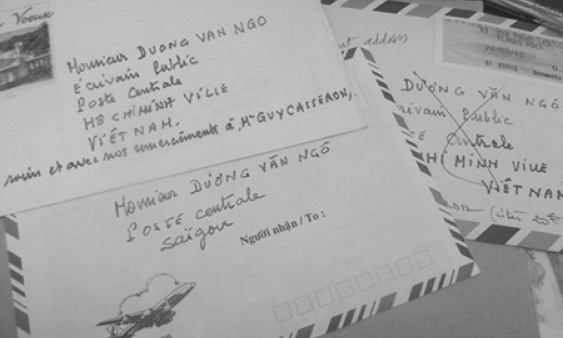 Voeux
Monsieur DUONG VAN NGO
Écrivain Public
Poste Centrale
HÔ CHI MINH VILLE
VIÊT NAM.
soin et avec nos remerciements à, Mr GUY CASSERON,
Monsieur DƯƠNG VĂN NGÔ
POSTE centrale
Saïgon
Người nhận / To :
address
DƯƠNG VĂN NGỘ
Ecrivain Public
Centrale
CHI MINH VILLE
VIỆT NAM